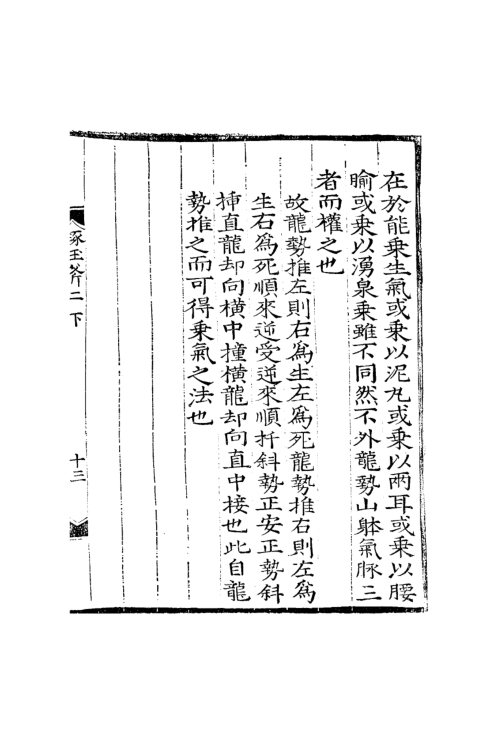 在於能乘生氣或乘以泥丸或乘以兩耳或乘以腰
腧或乘以湧泉乘雖不同然不外龍勢山躰氣脉三
者而權之也
故龍勢推左則右爲生左爲死龍勢推右則左爲
生右爲死順來逆受逆來順扦斜勢正安正勢斜
揷直龍却向橫中撞橫龍却向直中接也此自龍
勢推之而可得乘氣之法也
琢玉斧二下
十三